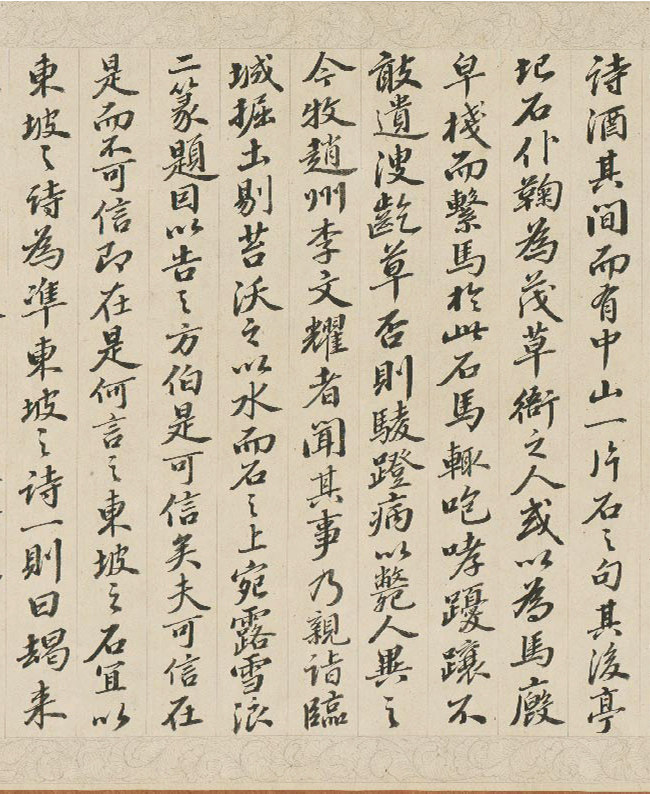 詩酒其間而有中山一片石之句其後亭
圮石仆鞠為茂草衙之人或以為馬廄
皁棧而繫馬於此石馬輒咆哮躩躟不
敢遺溲齕草否則騣蹬病以斃人異之
今牧趙州李文耀者聞其事乃親詣臨
城掘土剔苔沃之以水而石之上宛露雪浪
二篆題因以告之方伯是可信矣夫可信在
是而不可信即在是何言之東坡之石宜以
東坡之詩為準東坡之詩一則曰朅来